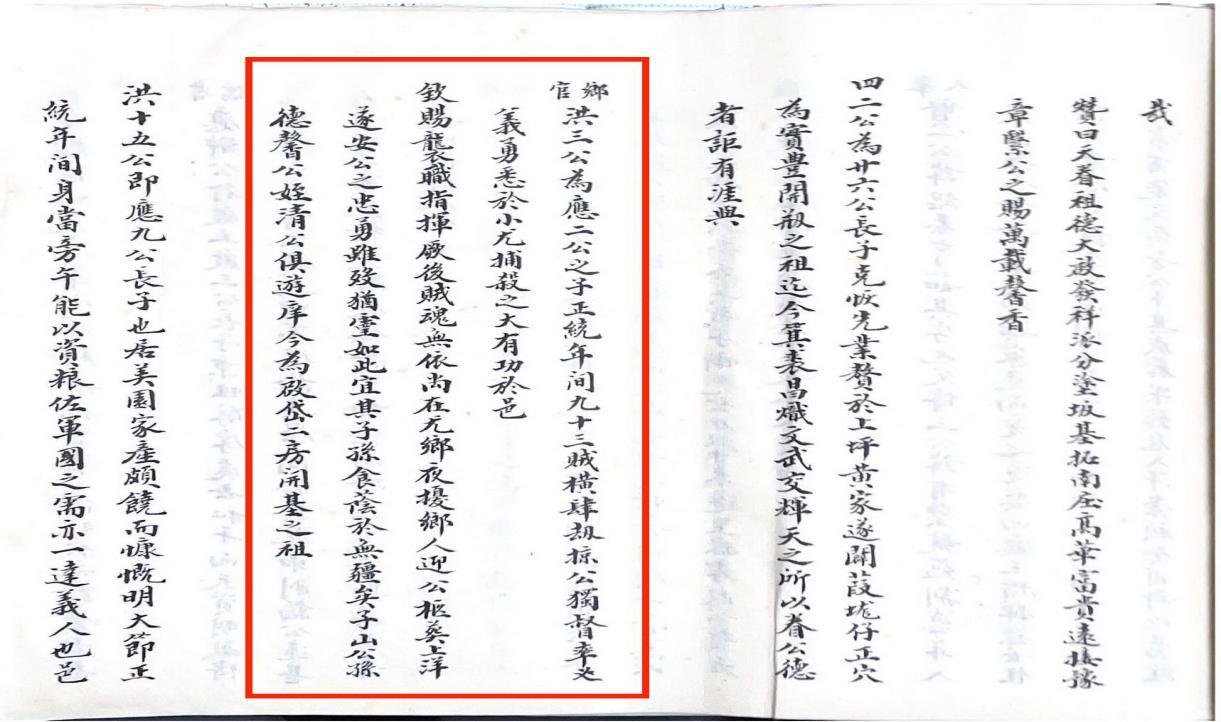 哉
贊曰天眷祖德大啟發祥派分塗坂基拓南庄高華富貴遠接豫
章緊公之賜萬載馨香
四二公為廿六公長子克恢先業贅於上坪黃家遂闢葭垅仔正穴
為實豐開瓶之祖迄今箕裘昌熾文武交輝天之所以眷公德
者詎有涯與
鄉官洪三公為應二公之子正統年间九十三賊橫肆刼掠公獨督率义
義勇悉於小尤捕殺之大有功於邑
欽賜襲職指揮厥後賊魂無依尚在尤鄉夜擾鄉人迎公柩葬上洋
遂安公之忠勇雖歿猶靈如此宜其子孫食蔭於無疆矣子山公孫
德馨公姪清公俱遊庠今為啟岱二房開基之祖
洪十五公即應九公長子也居美園家產頗饒而慷慨明大節正
統年间身當旁午能以資粮佐軍國之需亦一達義人也邑